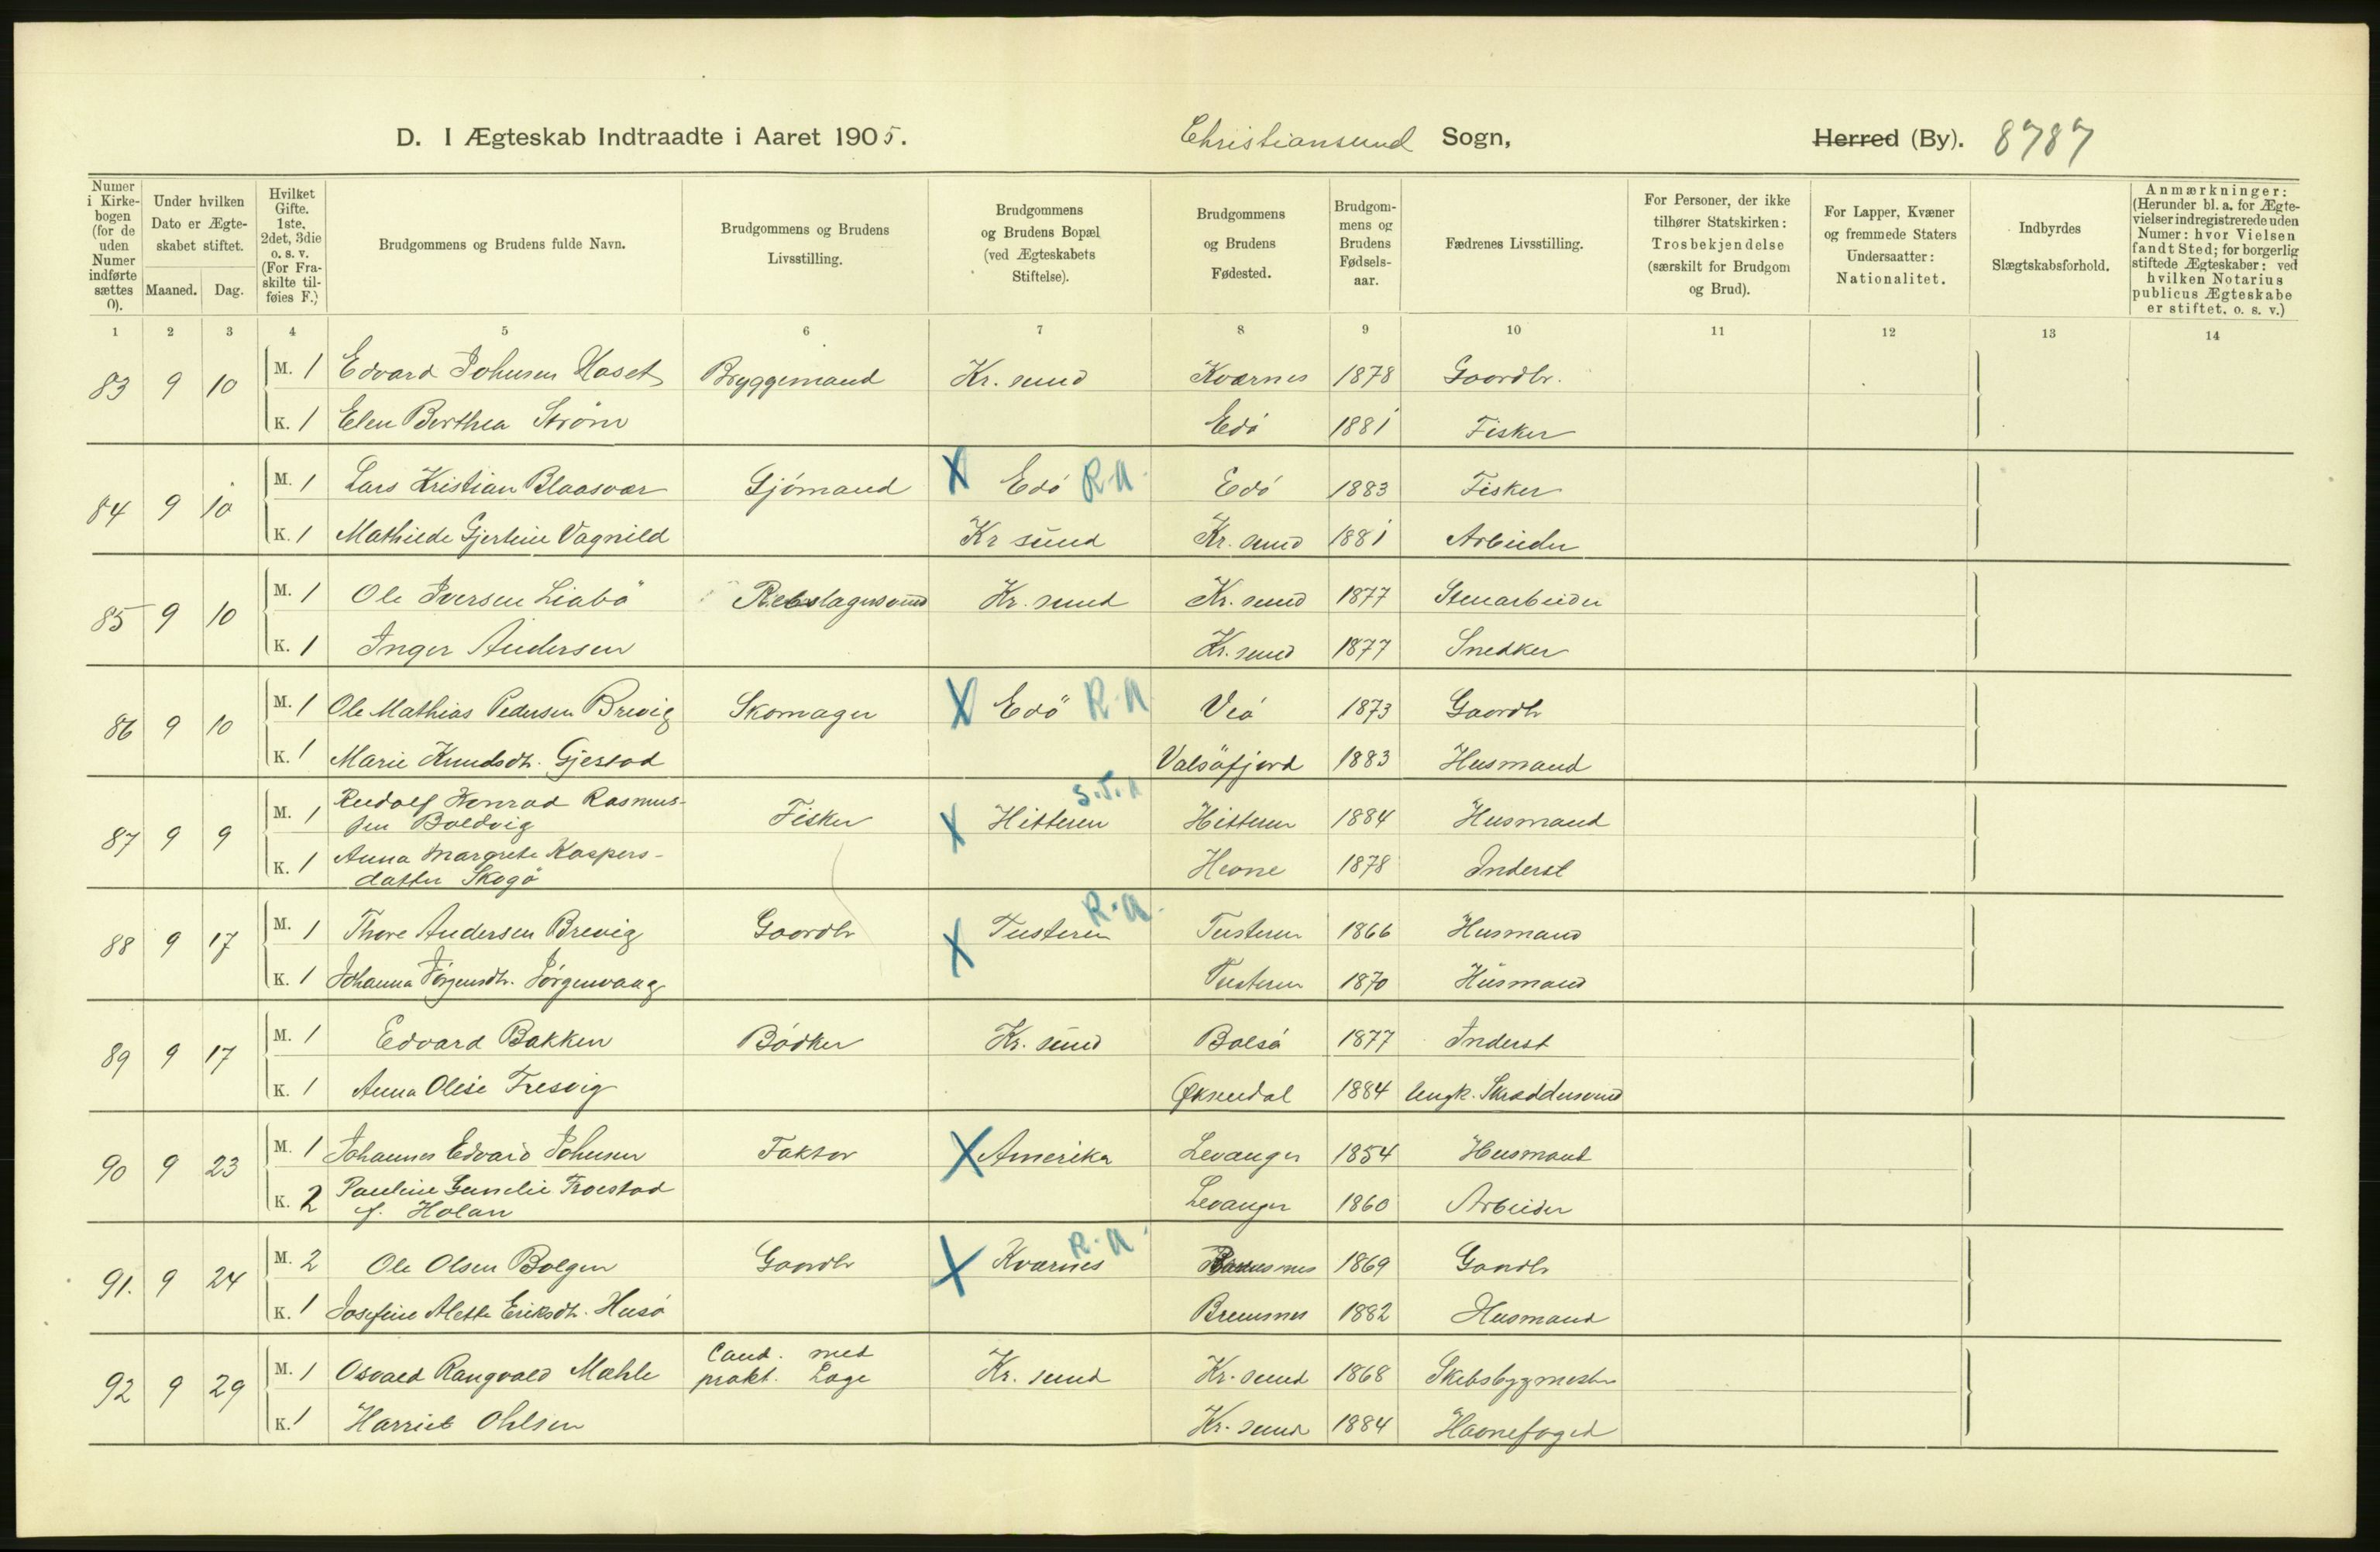 D. I Ægteskab Indtraadte i Aaret 1905. Christiansund Sogn, Herred (By). 8787
Numer i Kirkebogen (for de uden Numer indførte sættes 0).
Under hvilken Dato er Ægteskabet stiftet.
Maaned. Dag.
Hvilket Gifte. 1ste, 2det, 3die o. s. v. (For Fraskilte tilføies F.)
Brudgommens og Brudens fulde Navn.
Brudgommens og Brudens Livsstilling.
Brudgommens og Brudens Bopæl (ved Ægteskabets Stiftelse).
Brudgommens og Brudens Fødested.
Brudgommens og Brudens Fødselsaar.
Fædrenes Livsstilling.
For Personer, der ikke tilhører Statskirken: Trosbekjendelse (særskilt for Brudgom og Brud).
For Lapper, Kvæner og fremmede Staters Undersaatter: Nationalitet.
Indbyrdes Slægtskabsforhold.
Anmærkninger: (Herunder bl. a. for Ægtevielser indregistrerede uden Numer: hvor Vielsen fandt Sted; for borgerlig stiftede Ægteskaber: ved hvilken Notarius publicus Ægteskabe er stiftet, o. s. v.)
1 2 3 4 5 6 7 8 9 10 11 12 13 14
83 9 10 M. 1 Edvard Johnsen Haset Bryggemand Kr. sund Kværnes 1878 Gaardbr.
K. 1 Elen Berthea Strøm Edö 1881 Fisker
84 9 10 M. 1 Lars Kristian Blaasvær Gjömand X Edö R.A. Edö 1883 Fisker
K. 1 Mathilde Gjertine Vagnild Kr sund Kr. sund 1881 Arbeider
85 9 10 M. 1 Ole Iversen Liabö Rebslagersvend Kr. sund Kr. sund 1877 Stenarbeider
K. 1 Inger Andersen Kr. sund 1877 Snedker
86 9 10 M. 1 Ole Mathias Pedersen Brevig Skomager X Edö R.A Veö 1873 Gaardb
K. 1 Marie Knudsdtr. Gjestad Valsöfjord 1883 Husmand
87 9 9 M. 1 Rudolf Konrad Rasmussen Boldvig Fisker X Hitteren Hitteren 1884 Husmand
K. 1 Anna Margrete Kaspersdatter Skogö Hevne 1878 Inderst
88 9 17 M. 1 Thore Andersen Brevig Gaardb X Tusteren R.A. Tusteren 1866 Husmand
K. 1 Johanna Jörgensdtr. Jörgenvaag Tusteren 1870 Husmand
89 9 17 M. 1 Edvard Bakken Bödker Kr. sund Bolsö 1877 Inderst
K. 1 Anna Olise Tresvig Øksendal 1884 Ungk. Skræddersvend
90 9 23 M. 1 Johannes Edvard Johnsen Faktor X Amerika Levanger 1854 Husmand
K. 2 Pauline f. Holan Levanger 1860 Arbeider
91. 9 24 M. 2 Ole Olsen Bolgen Gaardb X Kværnes R.A. Bremsnes 1869 Gaardb
K. 1 Josefine Alette Eriksdtr. Husö Bremsnes 1882 Husmand
92 9 29 M. 1 Osvald Rangvald Mahle Cand. med prakt. Læge Kr. sund Kr. sund 1868 Skibsbygmester
K. 1 Harriet Ohlsen Kr. sund 1884 Havnefoged